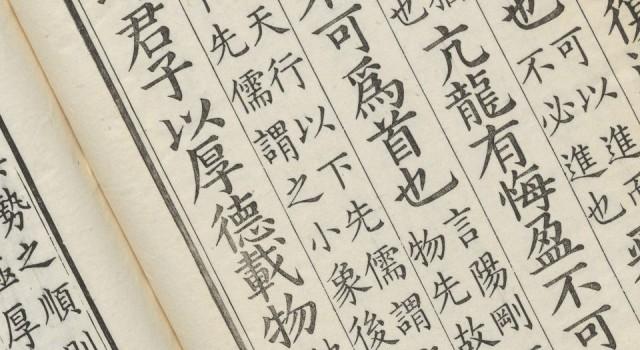 復
也
可以進而
不必進也
亢龍有悔盈不可
也
不可爲首也
言陽剛
物先故
天行以下先儒謂
下先儒謂之小象後
君子以厚德載物
勢之順則
極厚